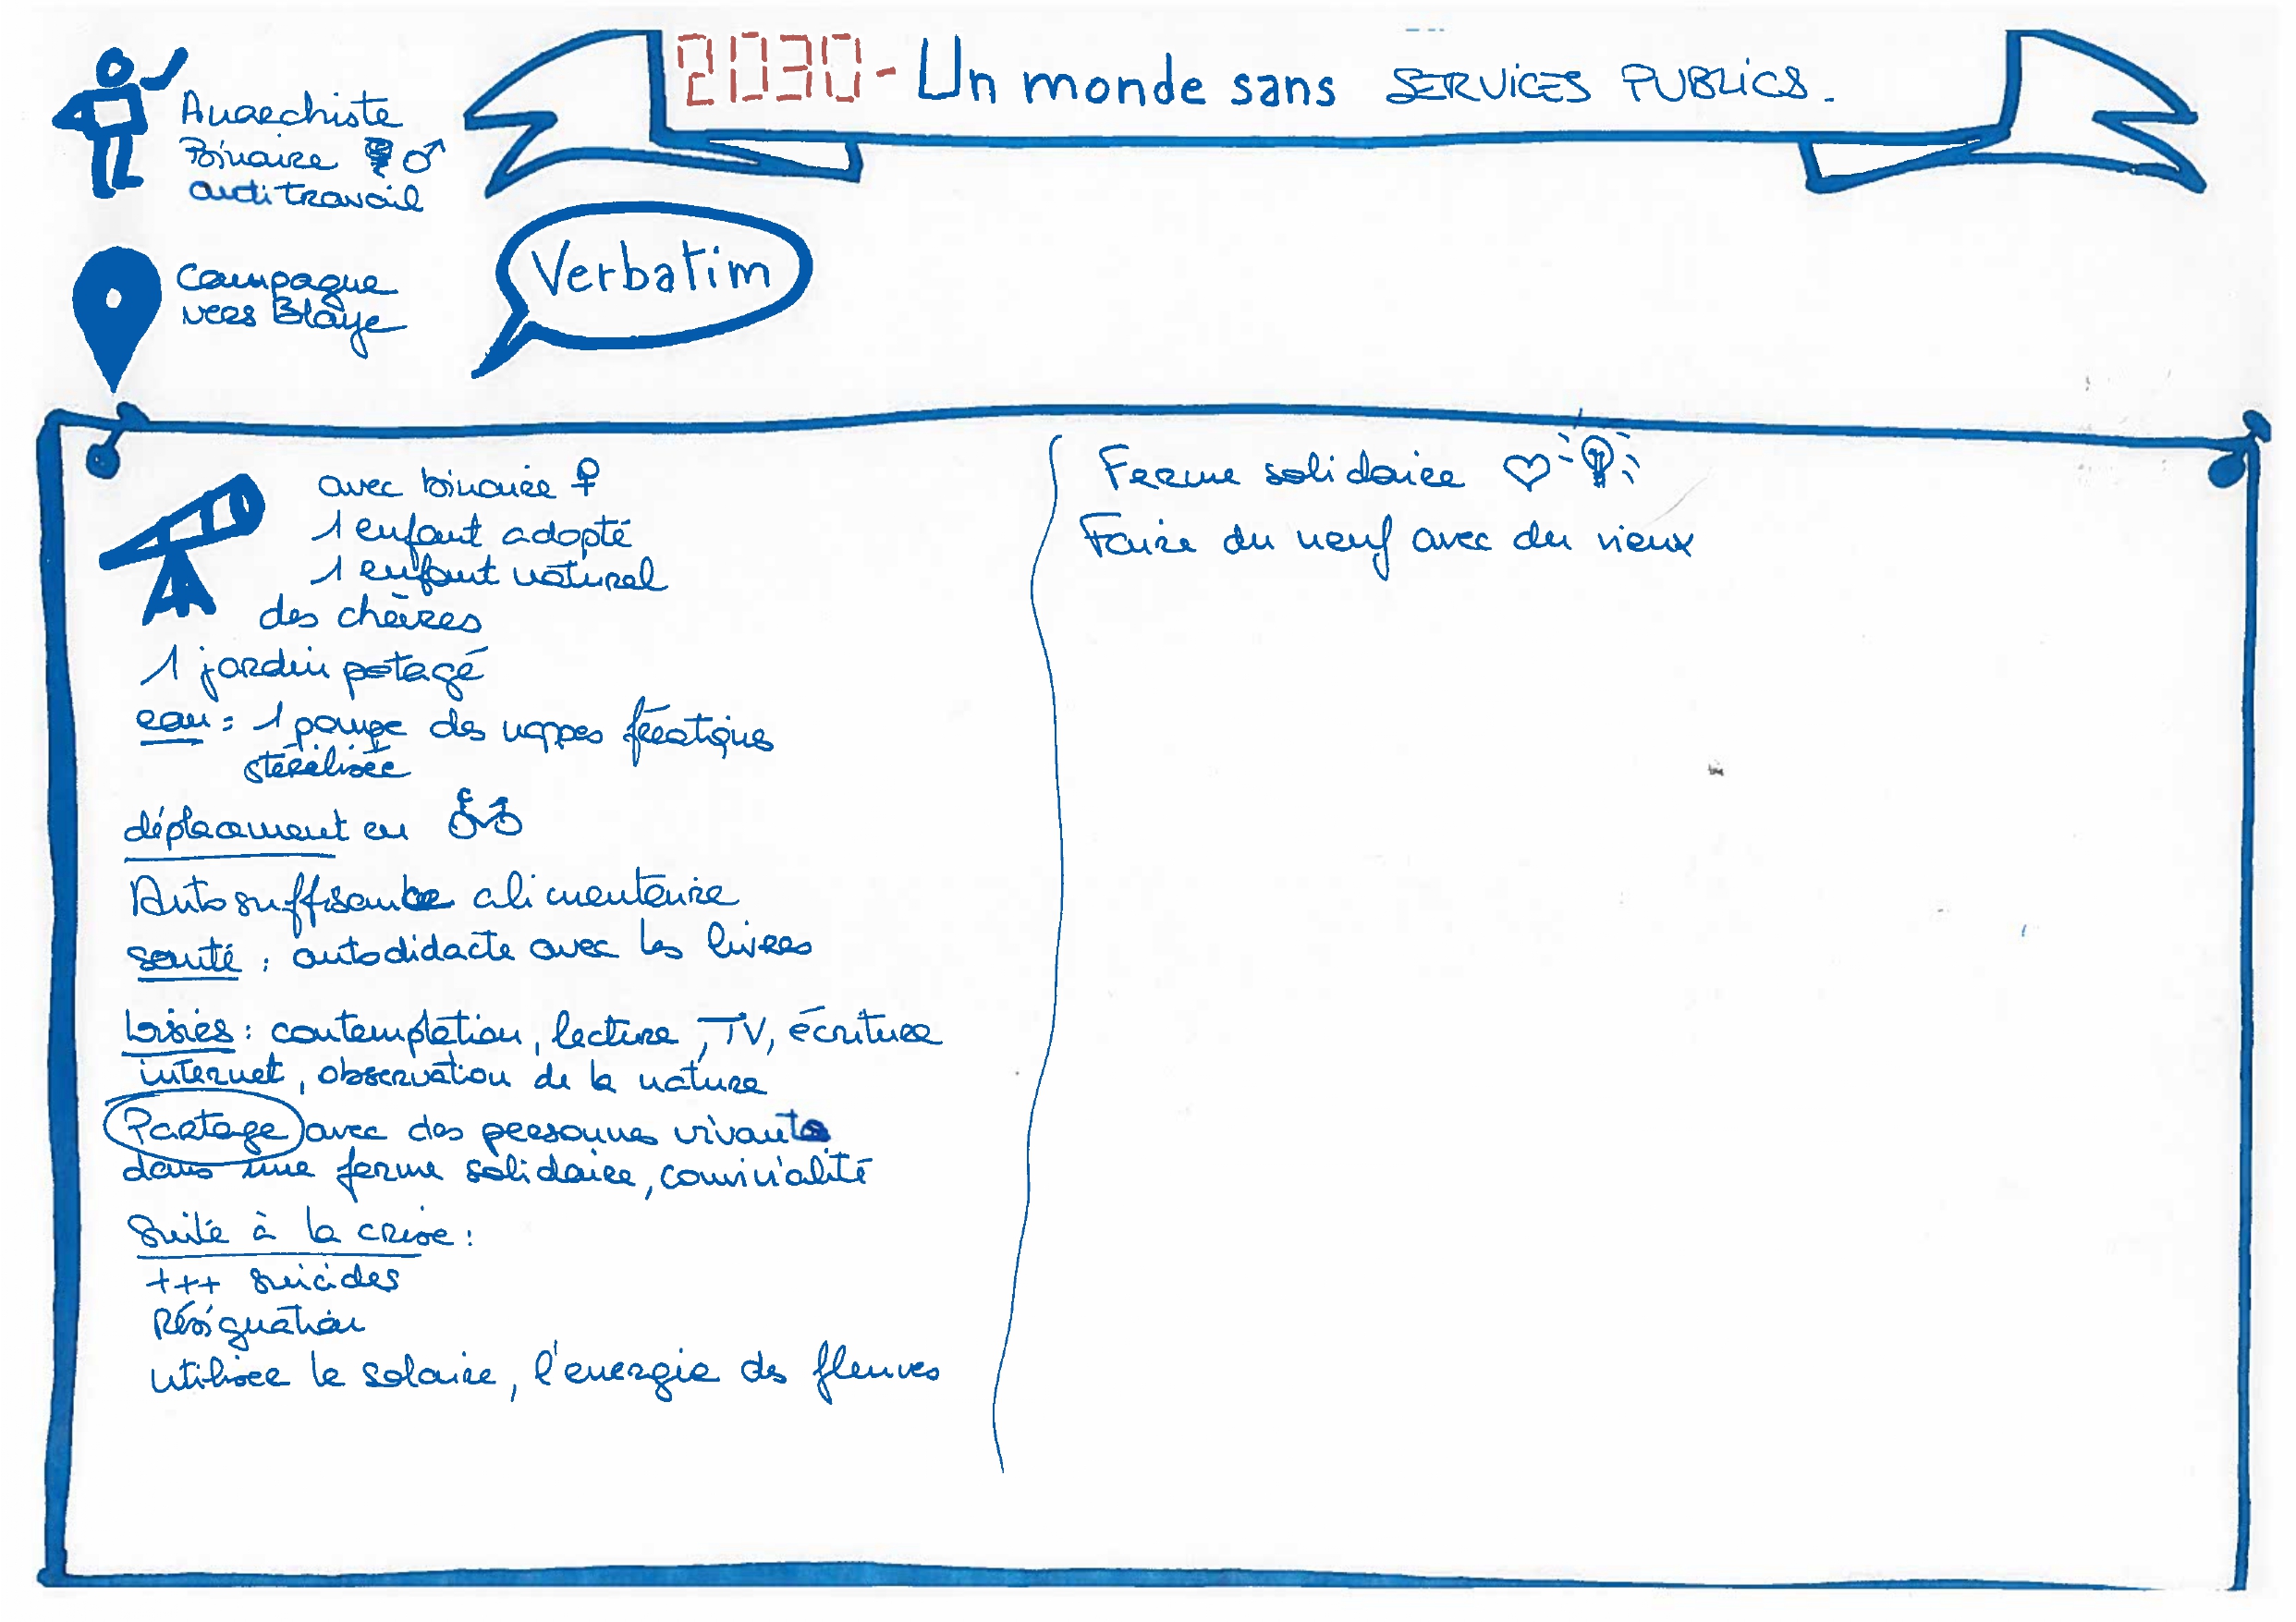 2030 - Un monde sans SERVICES PUBLICS.
Anarchiste
Binaire ♂
anti travail
Campagne
vers Blaye
Verbatim
avec binaire ♀
1 enfant adopté
1 enfant naturel
des chèvres
1 jardin potagé
eau = 1 pompe des nappes fréatiques
stérilisée
déplacement en
Autosuffisance alimentaire
santé : autodidacte avec les livres
Loisirs : contemplation, lecture, TV, écriture
internet, observation de la nature
Partage avec des personnes vivants
dans une ferme solidaire, convivialité
Suite à la crise :
+++ suicides
Résignation
utiliser le solaire, l'énergie des fleuves
Ferme solidaire
Faire du neuf avec du vieux